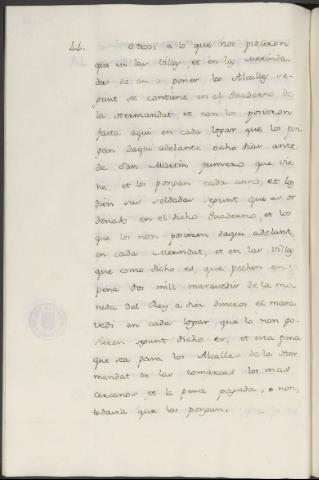 44. Otrosi a lo que nos pidieron
que en las Villas, et en las Merinda
des do an a poner los Alcalles se-
gunt se contiene en el Quaderno de
la Hermandat, et non los posieron
fasta aqui en cada logar que los pon
gan daqui adelante ocho dias ante
de San Martin primero que vie
ne, et los pongan cada anno, et los
den sus soldadas segunt que es or
denado en el dicho Quaderno, et los
que los non posieren daqui adelant,
en cada Merindat, et en las Villas
que como dicho es, que pechen en
pena dos mill maravedis de la mo
neda del Rey, a diez dineros el mara
vedi en cada logar, que lo non po-
sieren segunt dicho es; et esta pena
que sea para los Alcalles de la Her
mandat de las comarcas los mas
cercanos, et la pena pagada, o non,
todavia que los pongan.